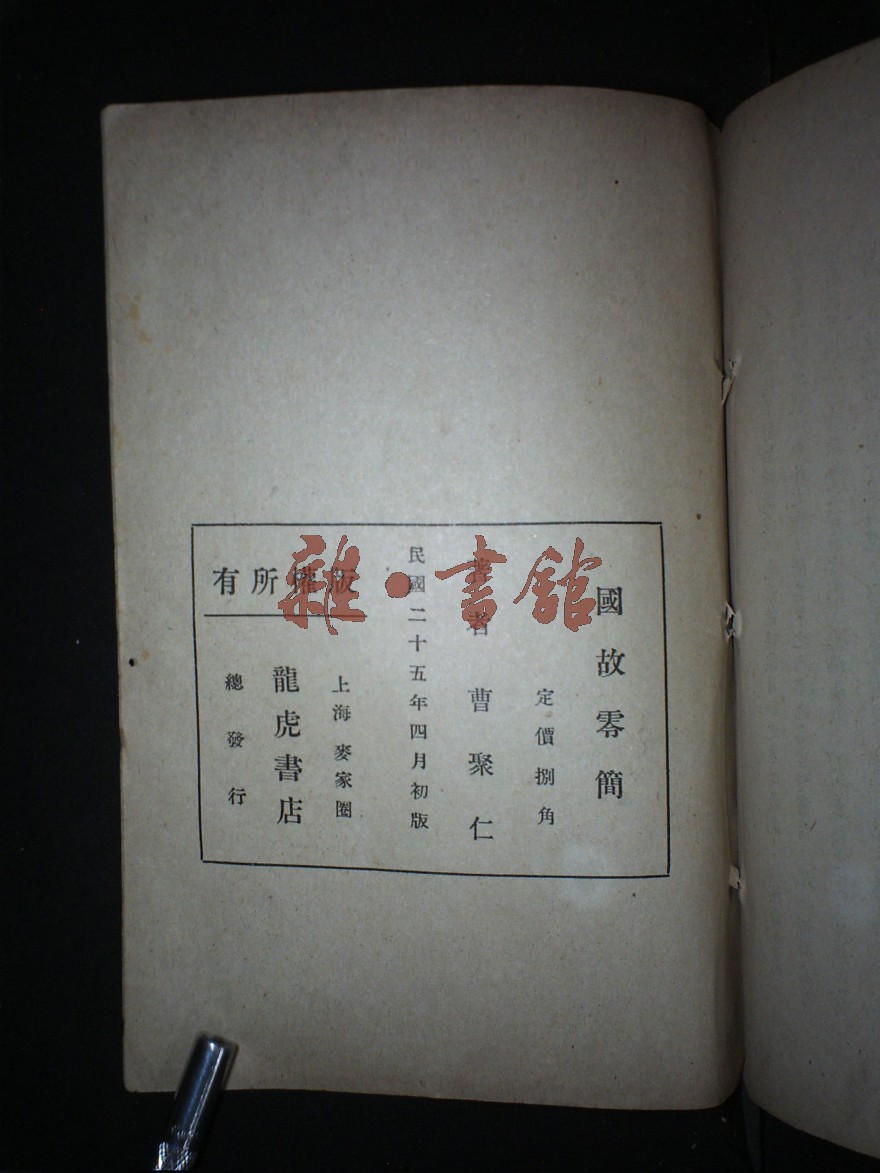 國故零簡
定價捌角
著者 曹聚仁
民國二十五年四月初版
版權所有
上海麥家圈
龍虎書店
總發行
雜·書館